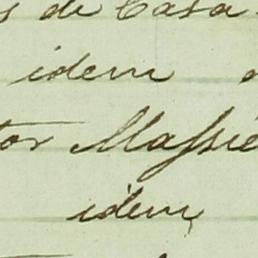 de Casa
idem
Massie
idem